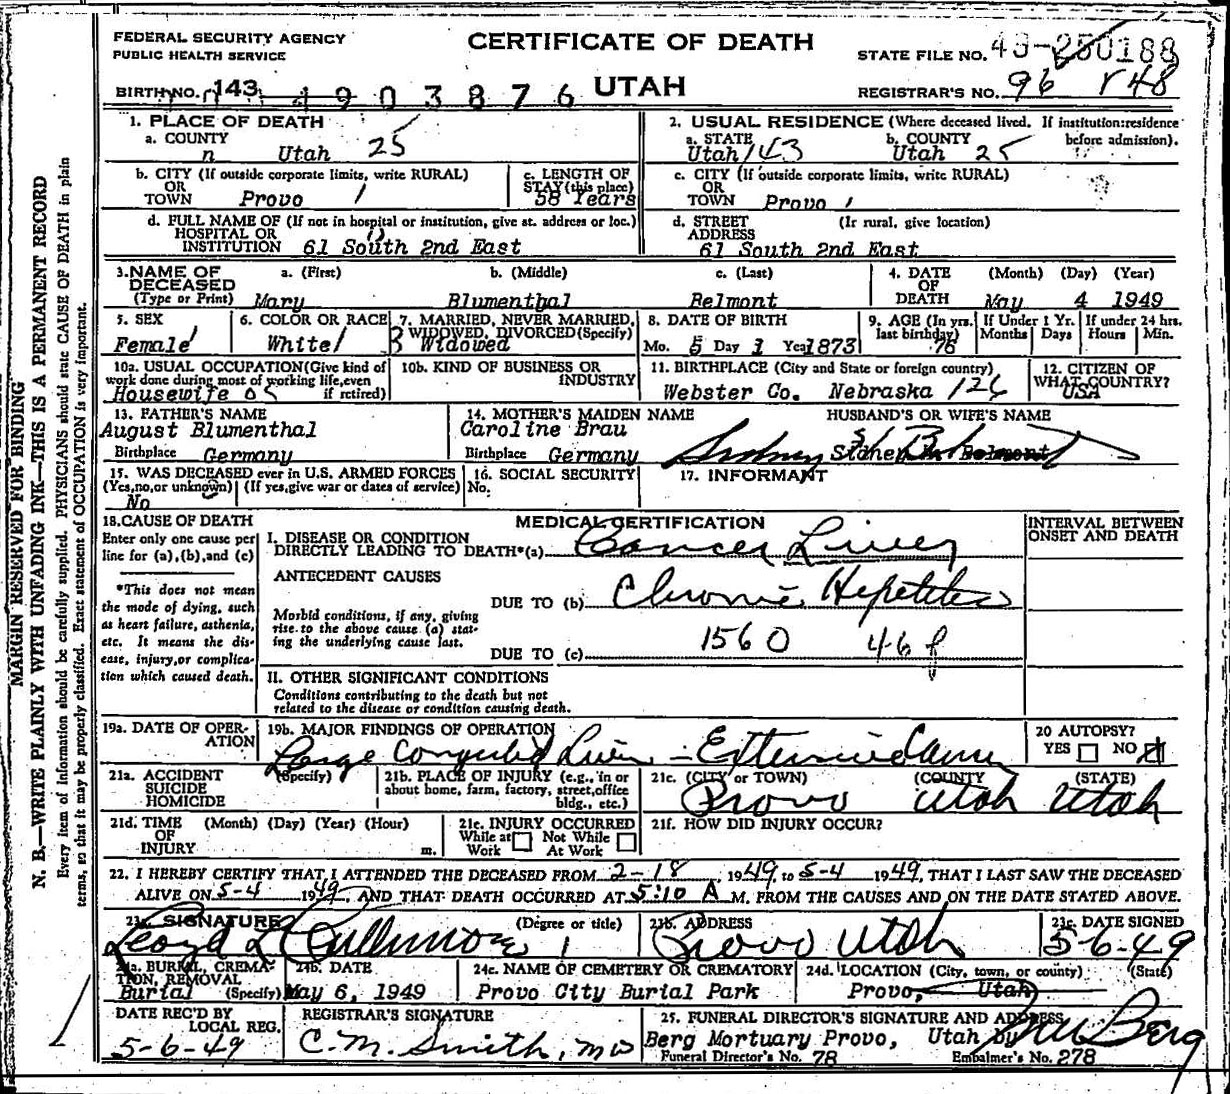 FEDERAL SECURITY AGENCY
PUBLIC HEALTH SERVICE
CERTIFICATE OF DEATH
UTAH
STATE FILE NO.
BIRTH NO. 143 4903876
REGISTRAR'S NO. 96 148
MARGIN RESERVED FOR BINDING
N. B.—WRITE PLAINLY WITH UNFADING INK—THIS IS A PERMANENT RECORD
Every item of information should be carefully supplied. PHYSICIANS should state CAUSE OF DEATH in plain
terms, so that it may be properly classified. Exact statement of OCCUPATION is very important.
1. PLACE OF DEATH
a. COUNTY
n Utah 25
2. USUAL RESIDENCE (Where deceased lived. If institution:residence
before admission).
a. STATE b. COUNTY
Utah 143 Utah 25
b. CITY (If outside corporate limits, write RURAL)
OR
TOWN Provo 1
c. LENGTH OF
STAY (this place)
58 Years
c. CITY (If outside corporate limits, write RURAL)
OR
TOWN Provo 1
d. FULL NAME OF (If not in hospital or institution, give st. address or loc.)
HOSPITAL OR
INSTITUTION 61 South 2nd East
d. STREET (If rural, give location)
ADDRESS
61 South 2nd East
3. NAME OF DECEASED
(Type or Print)
a. (First) b. (Middle) c. (Last)
Mary Blumenthal Belmont
4. DATE OF DEATH (Month) (Day) (Year)
May 4 1949
5. SEX
Female
6. COLOR OR RACE
White
7. MARRIED, NEVER MARRIED,
WIDOWED, DIVORCED (Specify)
3 Widowed
8. DATE OF BIRTH
Mo. 5 Day 1 Year 1873
9. AGE (In yrs. last birthday)
76
If Under 1 Yr. Months Days
If under 24 hrs. Hours Min.
10a. USUAL OCCUPATION (Give kind of
work done during most of working life, even
if retired)
Housewife
10b. KIND OF BUSINESS OR
INDUSTRY
11. BIRTHPLACE (City and State or foreign country)
Webster Co. Nebraska 126
12. CITIZEN OF
WHAT COUNTRY?
USA
13. FATHER'S NAME
August Blumenthal
Birthplace Germany
14. MOTHER'S MAIDEN NAME
Caroline Brau
Birthplace Germany
HUSBAND'S OR WIFE'S NAME
Sidney Belmont
15. WAS DECEASED ever in U.S. ARMED FORCES
(Yes, no, or unknown) (If yes, give war or dates of service)
No
16. SOCIAL SECURITY
No.
17. INFORMANT
18. CAUSE OF DEATH
Enter only one cause per
line for (a), (b), and (c)
*This does not mean
the mode of dying, such
as heart failure, asthenia,
etc. It means the dis-
ease, injury, or complica-
tion which caused death.
MEDICAL CERTIFICATION
INTERVAL BETWEEN
ONSET AND DEATH
I. DISEASE OR CONDITION
DIRECTLY LEADING TO DEATH*(a) Cancer Liver
ANTECEDENT CAUSES
DUE TO (b) Chronic Hepatitis
Morbid conditions, if any, giving
rise to the above cause (a) stat-
ing the underlying cause last.
DUE TO (c) 1560 46 f
II. OTHER SIGNIFICANT CONDITIONS
Conditions contributing to the death but not
related to the disease or condition causing death.
19a. DATE OF OPER-
ATION
19b. MAJOR FINDINGS OF OPERATION
Large Liver - Extensive
20 AUTOPSY?
YES NO
21a. ACCIDENT
SUICIDE
HOMICIDE
(Specify)
21b. PLACE OF INJURY (e.g., in or
about home, farm, factory, street, office
bldg., etc.)
21c. (CITY or TOWN) (COUNTY) (STATE)
Provo Utah Utah
21d. TIME OF INJURY (Month) (Day) (Year) (Hour)
m.
21e. INJURY OCCURRED
While at Work Not While At Work
21f. HOW DID INJURY OCCUR?
22. I HEREBY CERTIFY THAT I ATTENDED THE DECEASED FROM 2-18, 1949, to 5-4 1949, THAT I LAST SAW THE DECEASED
ALIVE ON 5-4 1949, AND THAT DEATH OCCURRED AT 5:10 A M. FROM THE CAUSES AND ON THE DATE STATED ABOVE.
23a. SIGNATURE (Degree or title)
Lloyd L Cullimore
23b. ADDRESS
Provo Utah
23c. DATE SIGNED
5-6-49
24a. BURIAL, CREMA-
TION, REMOVAL
Burial (Specify)
24b. DATE
May 6, 1949
24c. NAME OF CEMETERY OR CREMATORY
Provo City Burial Park
24d. LOCATION (City, town, or county) (State)
Provo, Utah
DATE REC'D BY
LOCAL REG.
5-6-49
REGISTRAR'S SIGNATURE
C. M. Smith, MD
25. FUNERAL DIRECTOR'S SIGNATURE AND ADDRESS
Berg Mortuary Provo, Utah by Berg
Funeral Director's No. 78 Embalmer's No. 278